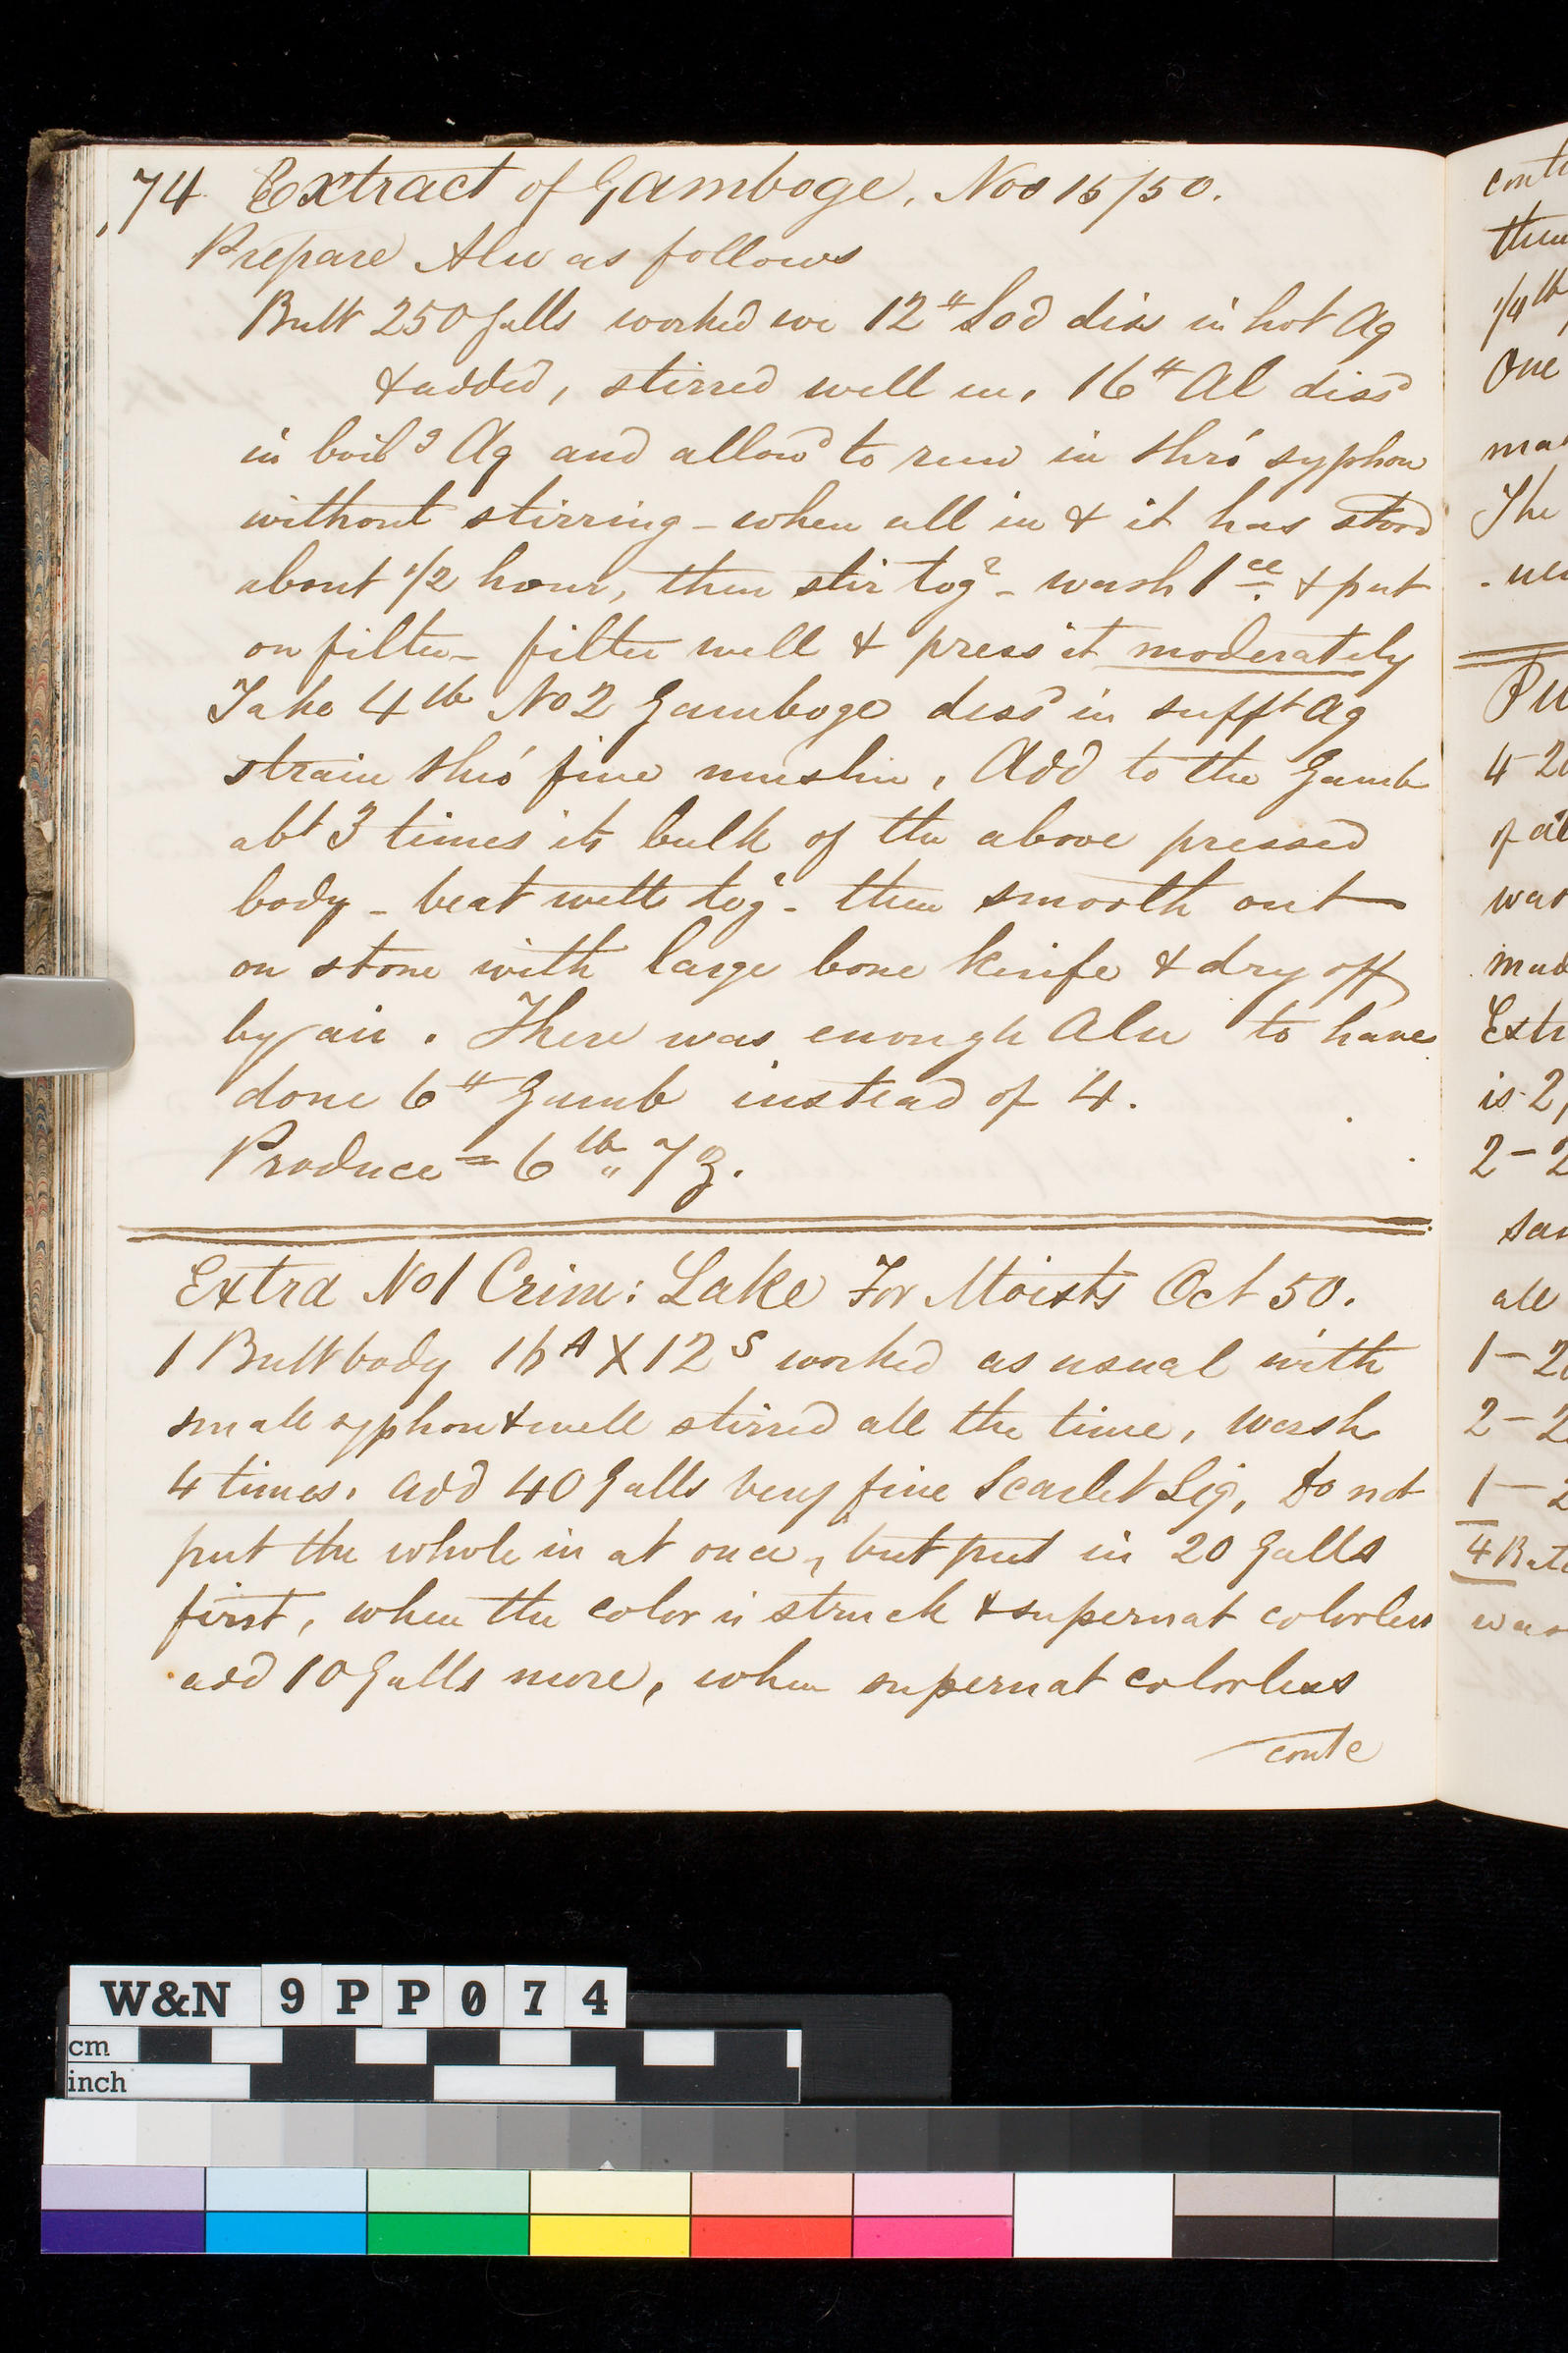 74 Extract of Gamboge, Nov 15/50.
Prepare Alu as follows
Butt 250 galls worked wi 12" Sod diss in hot Aq
& added, stirred well in, 16" Al dissd
in boilg Aq and allowd to run in thro' syphon
without stirring - when all in & it has stood
about 1/2 hour, then stir togr - wash 1ce & put
on filter - filter well & press it moderately
Take 4 lb No 2 Gamboge dissd in sufft Aq
strain thro' fine muslin, Add to the Gamb
abt 3 times its bulk of the above pressed
body - beat well togr - then smooth out
on stone with large bone knife & dry off
by air. There was enough Alu to have
done 6" Gumb instead of 4.
Produce = 6 lb " 7 ℥.
Extra No 1 Crim: Lake For Moists Oct 50.
1 Butt body 16 A X 12 S worked as usual with
small syphon & well stirred all the time, Wash
4 times. Add 40 Galls very fine Scarlet Liq, Do not
put the whole in at once, but put in 20 Galls
first, when the color is struck & supernat colorless
add 10 Galls more, when supernat colorless
conte
conti
then
1/4 lb
One
The
4-20
of
was
Extr
is 2,
2-2
all
1-20
2-2
1-2
4 Butt
was
W&N 9 P P 0 7 4
cm
inch